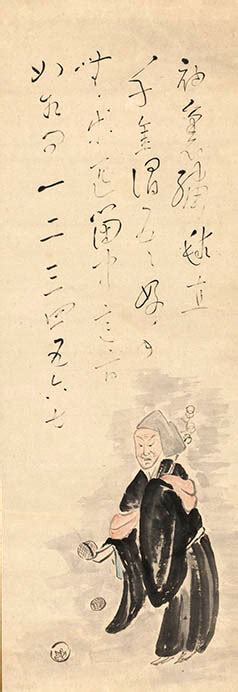 袖裏繍毬直
千金謂言好手
無等匹箇中意旨
如相問一二三四五六七